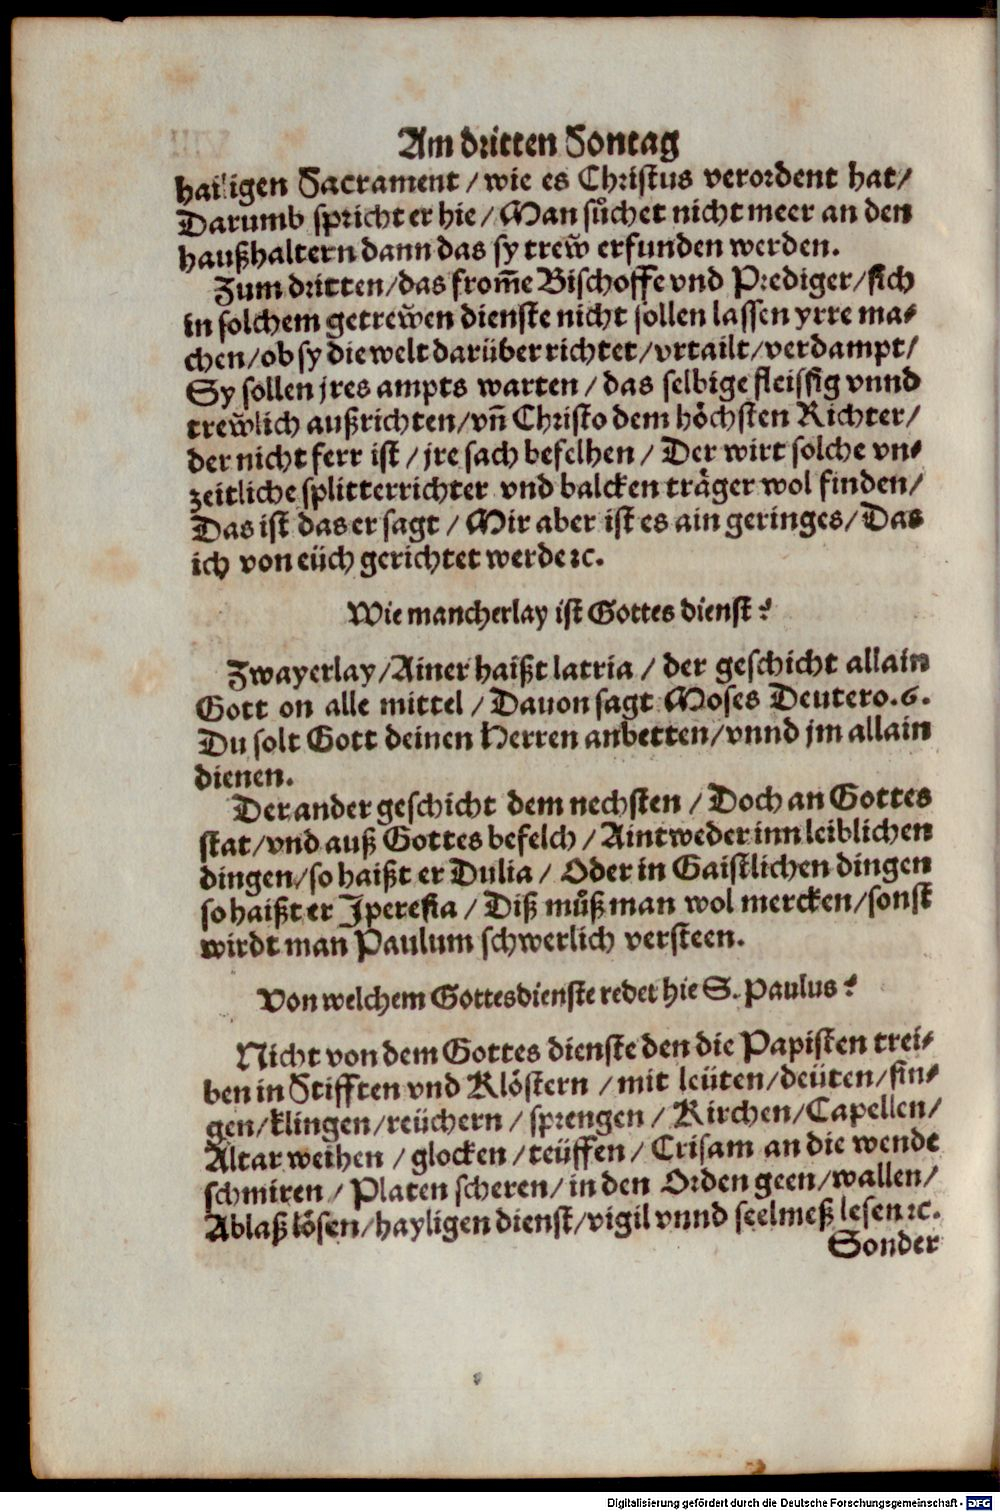 Am dritten Sontag
hailigen Sacrament / wie es Christus verordent hat/
Darumb spricht er hie / Man sůchet nicht meer an den
haußhaltern dann das sy trew̆ erfunden werden.
Zum dritten/das from̄e Bischoffe vnd Prediger/sich
in solchem getrew̆en dienste nicht sollen lassen yrre ma⸗
chen/ob sy die welt darüber richtet/vrtailt/verdampt/
Sy sollen jres ampts warten / das selbige fleissig vnnd
trew̆lich außrichten/vn̄ Christo dem höchsten Richter/
der nicht ferr ist / jre sach befelhen / Der wirt solche vn⸗
zeitliche splitterrichter vnd balcken träger wol finden/
Das ist das er sagt / Mir aber ist es ain geringes/Das
ich von eüch gerichtet werde ꝛc.
Wie mancherlay ist Gottes dienst?
Zwayerlay/Ainer haißt latria / der geschicht allain
Gott on alle mittel / Dauon sagt Moses Deutero.6.
Du solt Gott deinen Herren anbetten/vnnd jm allain
dienen.
Der ander geschicht dem nechsten / Doch an Gottes
stat/vnd auß Gottes befelch / Aintweder inn leiblichen
dingen/so haißt er Dulia / Oder in Gaistlichen dingen
so haißt er Iperesia / Diß můß man wol mercken/sonst
wirdt man Paulum schwerlich versteen.
Von welchem Gottesdienste redet hie S. Paulus?
Nicht von dem Gottes dienste den die Papisten trei⸗
ben in Stifften vnd Klöstern / mit leüten/deüten/sin⸗
gen/klingen/reüchern / sprengen / Kirchen/Capellen/
Altar weihen / glocken / teüffen / Crisam an die wende
schmiren / Platen scheren/in den Orden geen/wallen/
Ablaß lösen/hayligen dienst/vigil vnnd seelmeß lesen ꝛc.
Sonder
Digitalisierung gefördert durch die Deutsche Forschungsgemeinschaft - DFG